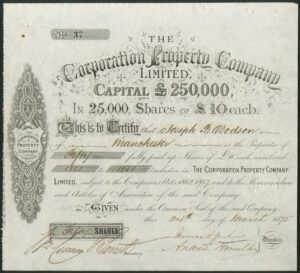 No. 37
THE
Corporation Property Company
LIMITED.
CAPITAL £250,000,
IN 25,000 SHARES OF £10 each.
This is to Certify that Joseph B
of Manchester is the Proprietor of
Fifty fully paid up Shares of £10 each numbered
to inclusive in THE CORPORATION PROPERTY COMPANY
LIMITED, subject to the Companies Acts 1862, 1867 and to the Memorandum
and Articles of Association of the said Company.
GIVEN under the Common Seal of the said Company,
this day of March 187
Fifty SHARES
Directors
PROPERTY
COMPANY